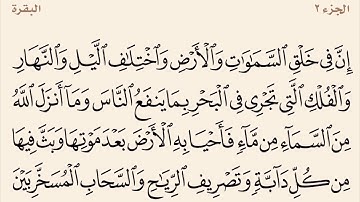 الجزء ٢ البقرة
إِنَّ فِي خَلْقِ السَّمَٰوَٰتِ وَالْأَرْضِ وَاخْتِلَٰفِ الَّيْلِ وَالنَّهَارِ
وَالْفُلْكِ الَّتِي تَجْرِي فِي الْبَحْرِ بِمَا يَنفَعُ النَّاسَ وَمَآ أَنزَلَ اللَّهُ
مِنَ السَّمَآءِ مِن مَّآءٍ فَأَحْيَا بِهِ الْأَرْضَ بَعْدَ مَوْتِهَا وَبَثَّ فِيهَا
مِن كُلِّ دَآبَّةٍ وَتَصْرِيفِ الرِّيَٰحِ وَالسَّحَابِ الْمُسَخَّرِ بَيْنَ